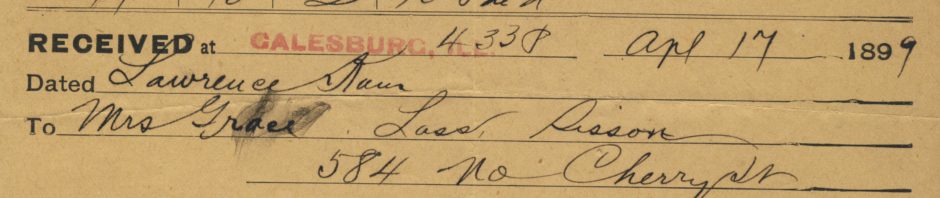 RECEIVED at GALESBURG, ILL. 4 33P Apl 17 1899
Dated Lawrence Kans
To Mrs Grace Lass Sisson
584 No Cherry St